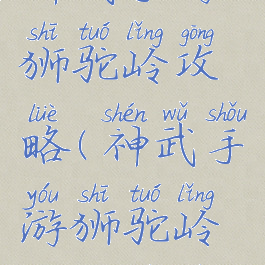 shī tuó lǐng gōng
狮驼岭攻
lüè shén wǔ shǒu
略(神武手
yóu shī tuó lǐng
游狮驼岭